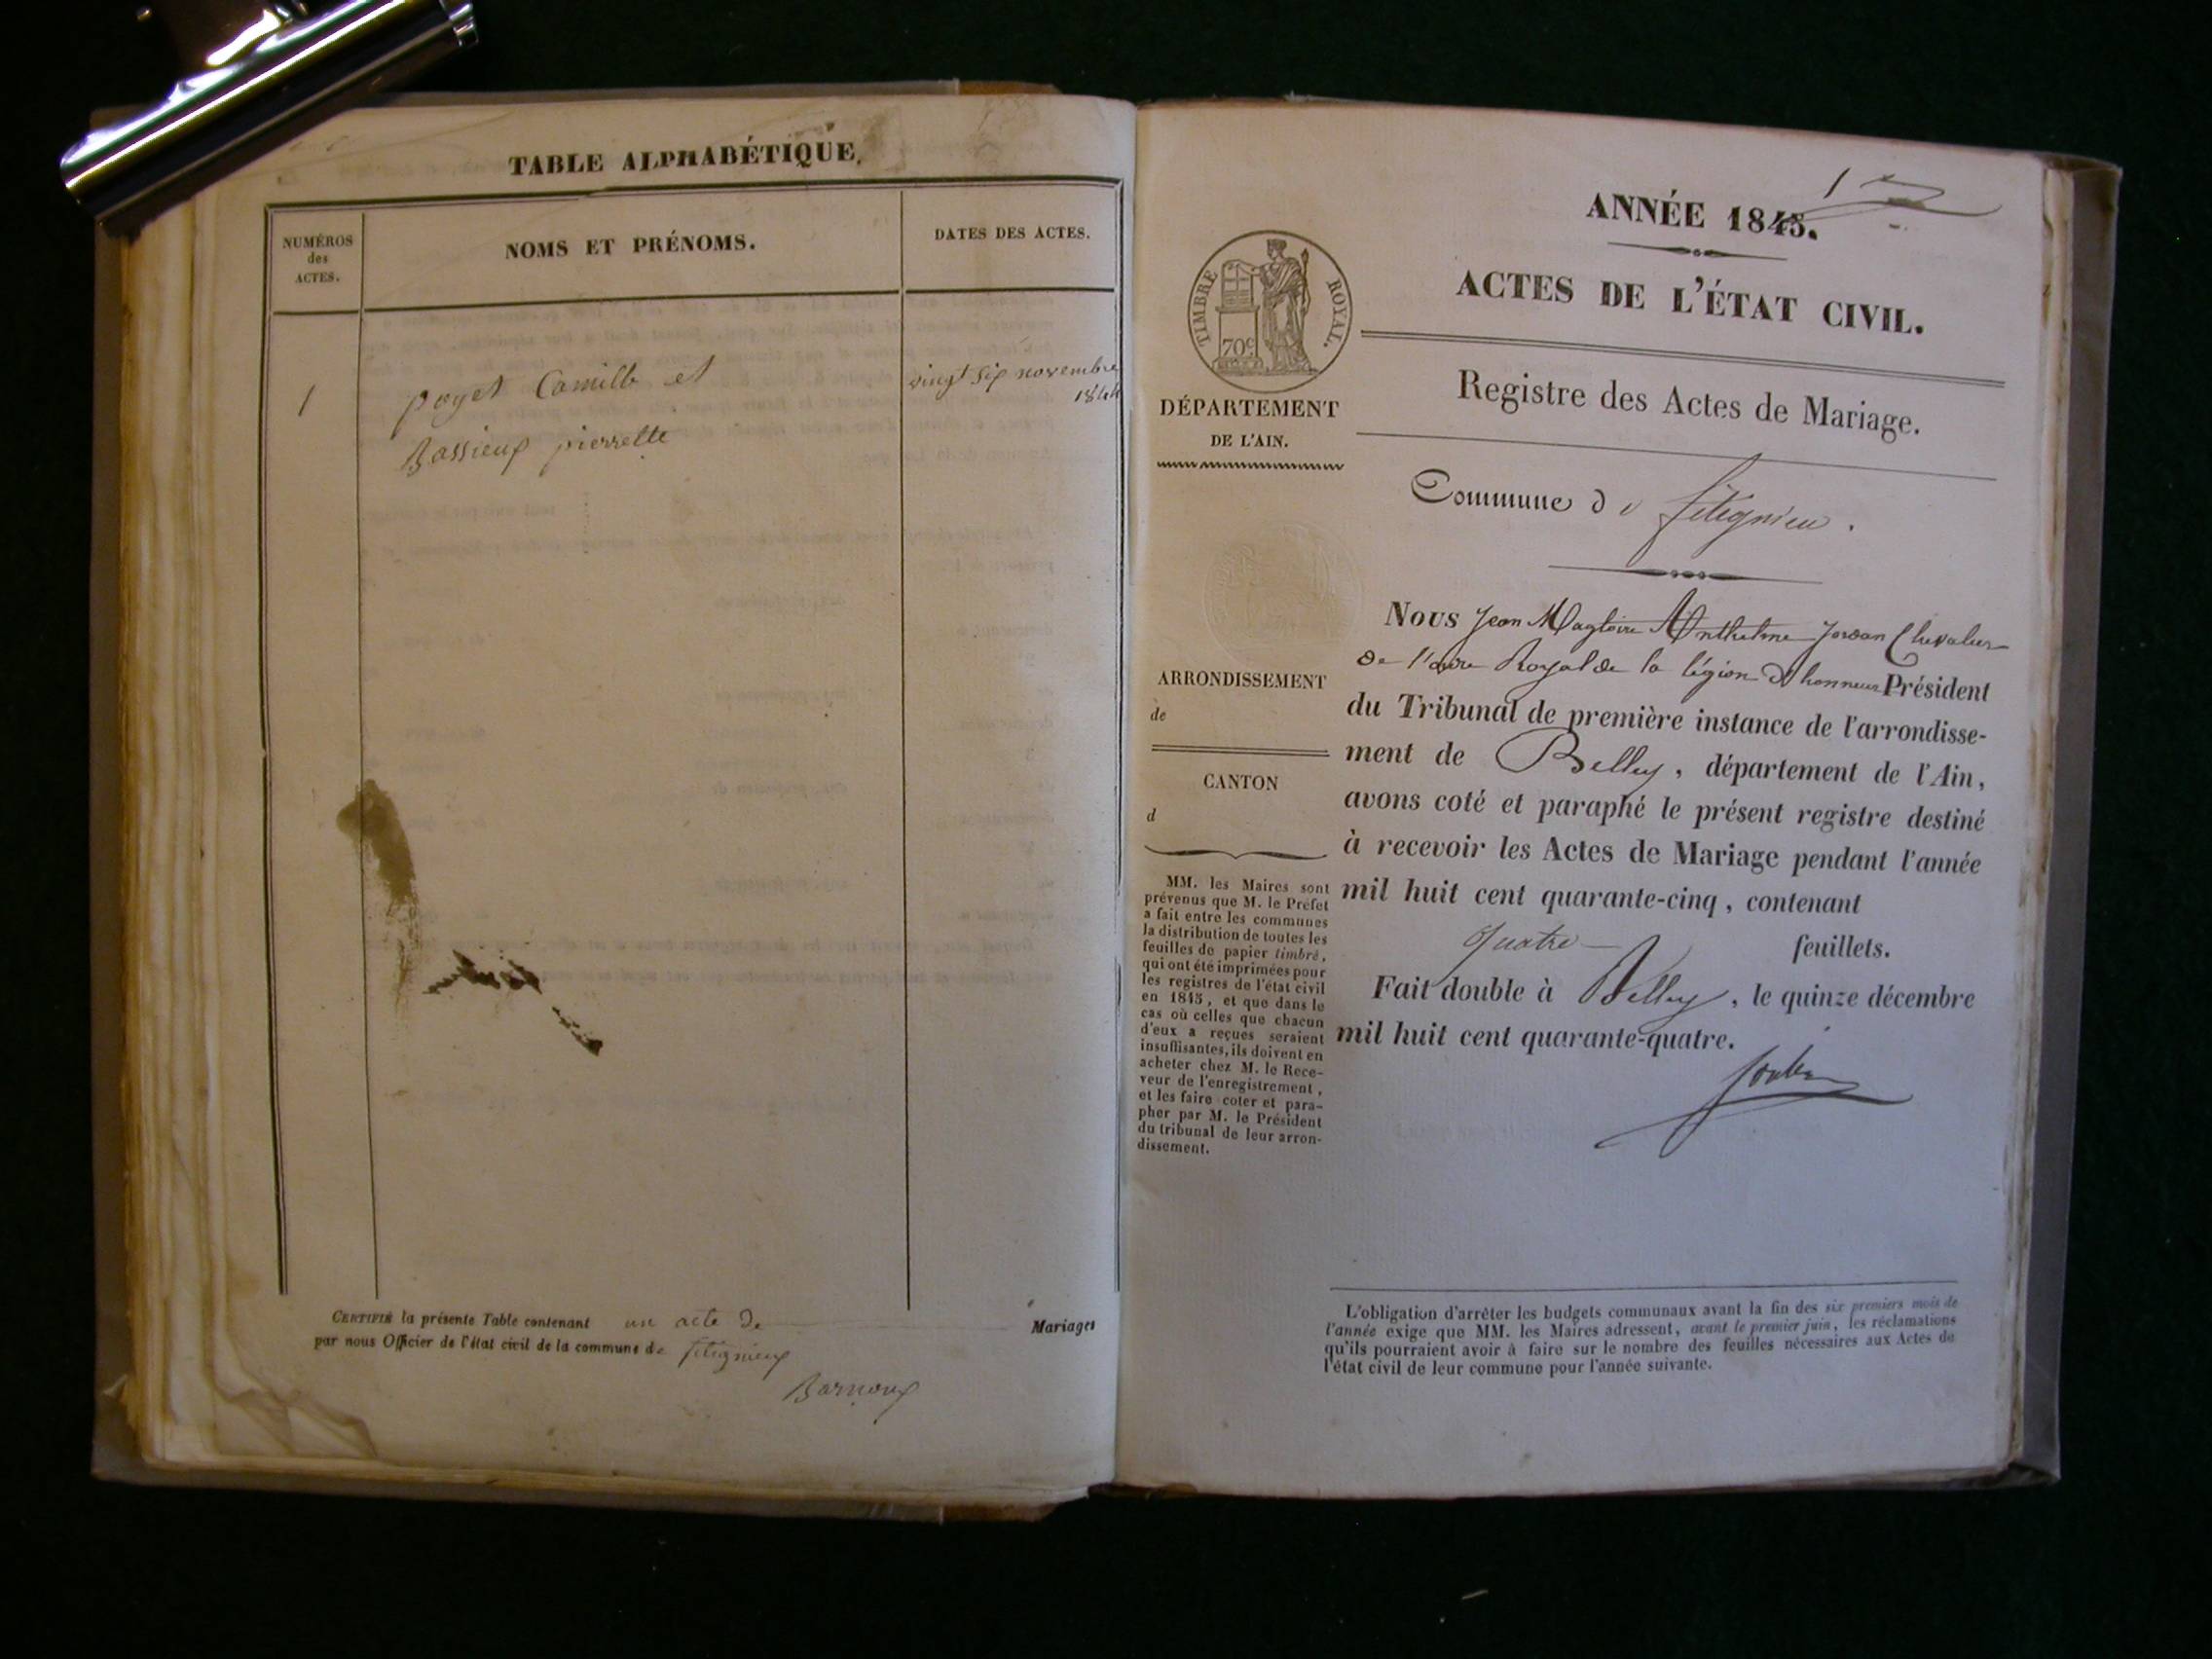 TABLE ALPHABÉTIQUE.
NUMÉROS
des
ACTES.
NOMS ET PRÉNOMS.
DATES DES ACTES.
1
poget Camille et
vingt six novembre
1844
Bassieux pierrette
CERTIFIÉ la présente Table contenant un acte de Mariages
par nous Officier de l'état civil de la commune de fitignieux
Barnoux
1
ANNÉE 1845.
ACTES DE L'ÉTAT CIVIL.
Registre des Actes de Mariage.
TIMBRE ROYAL.
70c
DÉPARTEMENT
DE L'AIN.
Commune de fitignieu.
ARRONDISSEMENT
de
CANTON
d
MM. les Maires sont
prévenus que M. le Préfet
a fait entre les communes
la distribution de toutes les
feuilles de papier timbré,
qui ont été imprimées pour
les registres de l'état civil
en 1845, et que dans le
cas où celles que chacun
d'eux a reçues seraient
insuffisantes, ils doivent en
acheter chez M. le Rece-
veur de l'enregistrement,
et les faire coter et para-
pher par M. le Président
du tribunal de leur arron-
dissement.
Nous Jean Magloire Anthelme Jordan Chevalier
de l'ordre Royal de la légion d'honneur Président
du Tribunal de première instance de l'arrondisse-
ment de Belley, département de l'Ain,
avons coté et paraphé le présent registre destiné
à recevoir les Actes de Mariage pendant l'année
mil huit cent quarante-cinq, contenant
quatre feuillets.
Fait double à Belley, le quinze décembre
mil huit cent quarante-quatre.
L'obligation d'arrêter les budgets communaux avant la fin des six premiers mois de
l'année exige que MM. les Maires adressent, avant le premier juin, les réclamations
qu'ils pourraient avoir à faire sur le nombre des feuilles nécessaires aux Actes de
l'état civil de leur commune pour l'année suivante.